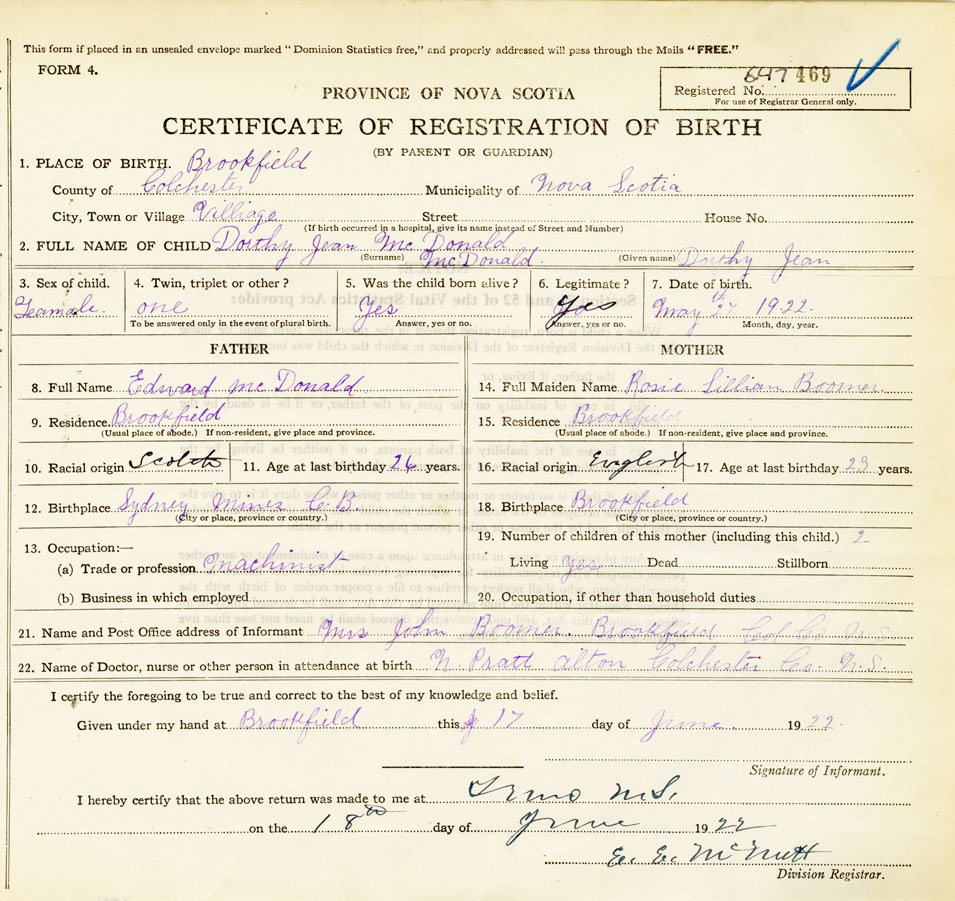 This form if placed in an unsealed envelope marked "Dominion Statistics free," and properly addressed will pass through the Mails "FREE."
FORM 4.
647469
Registered No.
For use of Registrar General only.
PROVINCE OF NOVA SCOTIA
CERTIFICATE OF REGISTRATION OF BIRTH
(BY PARENT OR GUARDIAN)
1. PLACE OF BIRTH. Brookfield
County of Colchester Municipality of Nova Scotia
City, Town or Village Villiage Street House No.
(If birth occurred in a hospital, give its name instead of Street and Number)
2. FULL NAME OF CHILD Dorthy Jean McDonald
(Surname) McDonald. (Given name) Dorthy Jean
3. Sex of child. 4. Twin, triplet or other? 5. Was the child born alive? 6. Legitimate? 7. Date of birth.
Feamale. one Yes Yes May 27th 1922
To be answered only in the event of plural birth. Answer, yes or no. Answer, yes or no. Month, day, year.
FATHER MOTHER
8. Full Name Edward McDonald 14. Full Maiden Name Rosie Lillian Boomer.
9. Residence. Brookfield 15. Residence Brookfield
(Usual place of abode.) If non-resident, give place and province. (Usual place of abode.) If non-resident, give place and province.
10. Racial origin Scotch 11. Age at last birthday 26 years. 16. Racial origin English 17. Age at last birthday 23 years.
12. Birthplace Sydney Mines C.B. 18. Birthplace Brookfield
(City or place, province or country.) (City or place, province or country.)
13. Occupation:— 19. Number of children of this mother (including this child.) 2
(a) Trade or profession Machinist Living Yes. Dead Stillborn
(b) Business in which employed 20. Occupation, if other than household duties
21. Name and Post Office address of Informant Mrs John Boomer. Brookfield Col Co N.S
22. Name of Doctor, nurse or other person in attendance at birth N. Pratt Alton Colchester Co. N.S.
I certify the foregoing to be true and correct to the best of my knowledge and belief.
Given under my hand at Brookfield this 17 day of June 1922.
Signature of Informant.
I hereby certify that the above return was made to me at Truro N.S.
on the 18th day of June 1922
E. E. McNutt
Division Registrar.